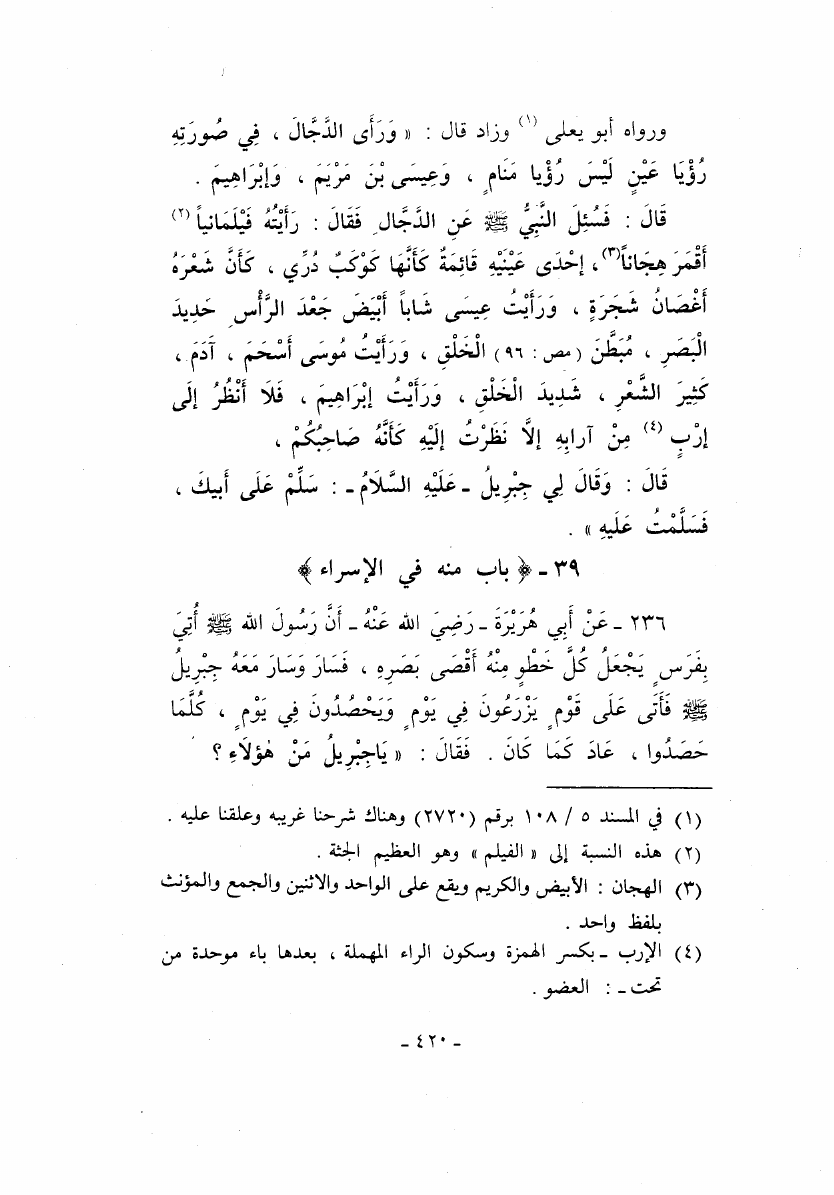 ورواه أبو يعلى (١) وزاد قال : « وَرَأَى الدَّجَّالَ ، فِي صُورَتِهِ
رُؤْيَا عَيْنٍ لَيْسَ رُؤْيا مَنَامٍ ، وَعِيسَى بْنَ مَرْيَمَ ، وَإِبْرَاهِيمَ .
قَالَ : فَسُئِلَ النَّبِيُّ ﷺ عَنِ الدَّجَّالِ فَقَالَ : رَأَيْتُهُ فَيْلَمَانِياً (٢)
أَقْمَرَ هِجَاناً (٣) ، إِحْدَى عَيْنَيْهِ قَائِمَةٌ كَأَنَّهَا كَوْكَبٌ دُرِّي ، كَأَنَّ شَعْرَهُ
أَغْصَانُ شَجَرَةٍ ، وَرَأَيْتُ عِيسَى شَاباً أَبْيَضَ جَعْدَ الرَّأْسِ حَدِيدَ
الْبَصَرِ ، مُبَطَّنَ (مص : ٩٦) الْخَلْقِ ، وَرَأَيْتُ مُوسَى أَسْحَمَ ، آدَمَ ،
كَثِيرَ الشَّعْرِ ، شَدِيدَ الْخَلْقِ ، وَرَأَيْتُ إِبْرَاهِيمَ ، فَلَا أَنْظُرُ إِلَى
إِرْبٍ (٤) مِنْ آرابِهِ إِلاَّ نَظَرْتُ إِلَيْهِ كَأَنَّهُ صَاحِبُكُمْ ،
قَالَ : وَقَالَ لِي جِبْرِيلُ ـ عَلَيْهِ السَّلَامُ ـ : سَلِّمْ عَلَى أَبِيكَ ،
فَسَلَّمْتُ عَلَيهِ » .
٣٩ ـ ﴿ باب منه في الإسراء ﴾
٢٣٦ ـ عَنْ أَبِي هُرَيْرَةَ ـ رَضِيَ الله عَنْهُ ـ أَنَّ رَسُولَ الله ﷺ أُتِيَ
بِفَرَسٍ يَجْعَلُ كُلَّ خَطْوٍ مِنْهُ أَقْصَى بَصَرِهِ ، فَسَارَ وَسَارَ مَعَهُ جِبْرِيلُ
ﷺ فَأَتَى عَلَى قَوْمٍ يَزْرَعُونَ فِي يَوْمٍ وَيَحْصُدُونَ فِي يَوْمٍ ، كُلَّمَا
حَصَدُوا ، عَادَ كَمَا كَانَ . فَقَالَ : « يَاجِبْرِيلُ مَنْ هٰؤُلَاءِ ؟
(١) في المسند ٥ / ١٠٨ برقم (٢٧٢٠) وهناك شرحنا غريبه وعلقنا عليه .
(٢) هذه النسبة إلى « الفيلم » وهو العظيم الجثة .
(٣) الهجان : الأبيض والكريم ويقع على الواحد والاثنين والجمع والمؤنث
بلفظ واحد .
(٤) الإرب ـ بكسر الهمزة وسكون الراء المهملة ، بعدها باء موحدة من
تحت ـ : العضو .
ـ ٤٢٠ ـ